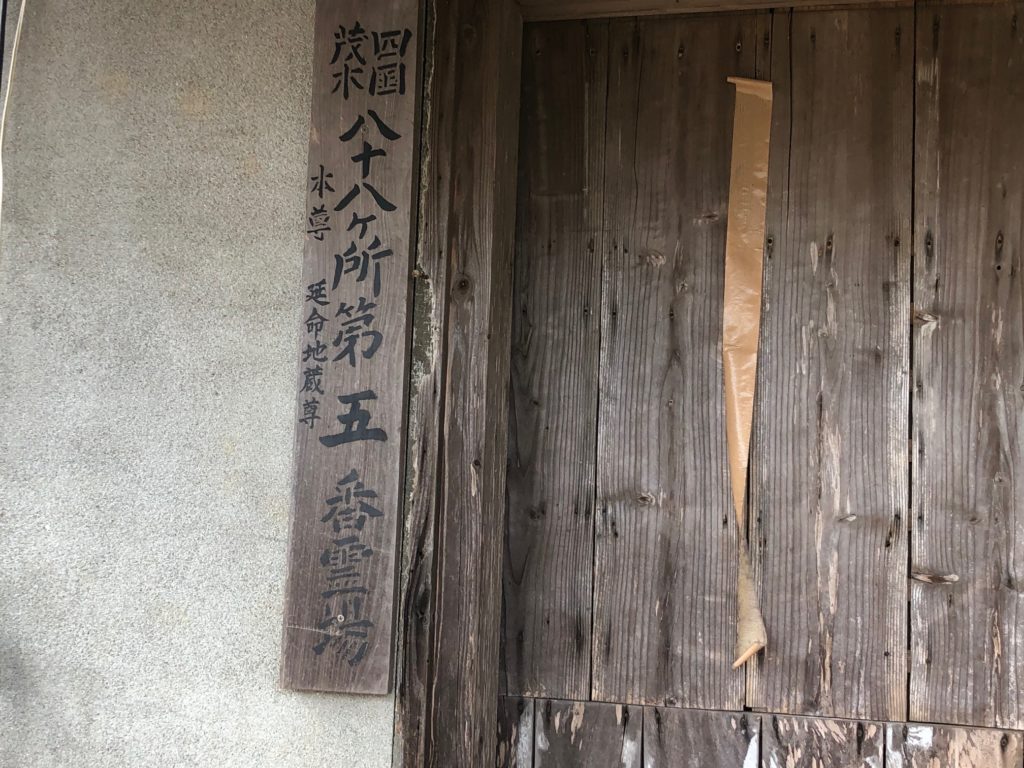 四国
茂木
八十八ヶ所第五番霊場
本尊 延命地蔵尊